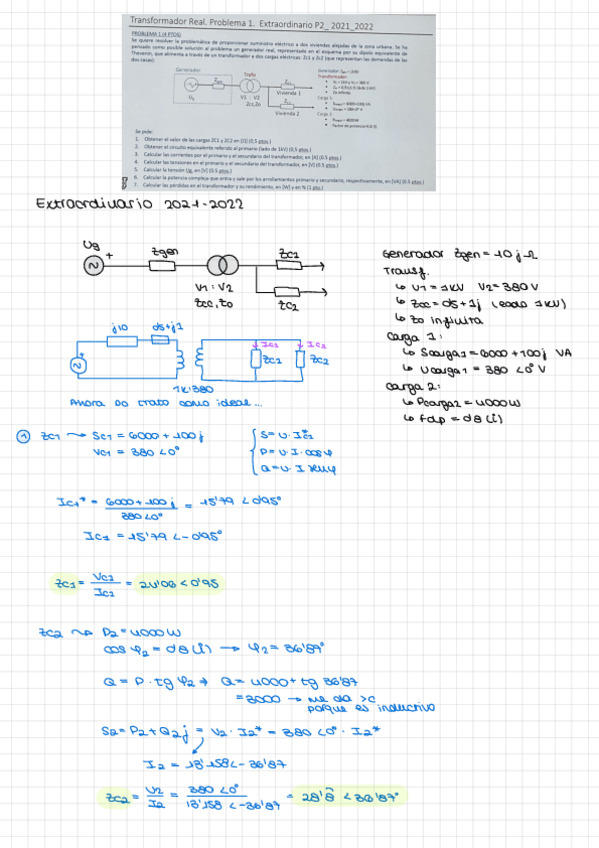 Transformador Real. Problema 1. Extraordinario P2_ 2021_2022
PROBLEMA 1 (4 PTOS)
Se quiere resolver la problemática de proporcionar suministro eléctrico a dos viviendas alejadas de la zona urbana. Se ha
pensado como posible solución al problema un generador real, representado en el esquema por su dipolo equivalente de
Thevenin, que alimenta a través de un transformador a dos cargas eléctricas: Zc1 y Zc2 (que representan las demandas de las
dos casas):
Generador
Zgen
Ug
Trafo
V1 : V2
Zcc,Zo
Zc1
Vivienda 1
Zc2
Vivienda 2
Transformador:
Carga 1:
Carga 2:
Se pide:
1. Obtener el valor de las cargas ZC1 y ZC2 en [Ω] (0,5 ptos.)
2. Obtener el circuito equivalente referido al primario (lado de 1kV) (0,5 ptos.)
3. Calcular las corrientes por el primario y el secundario del transformador, en [A] (0,5 ptos.)
4. Calcular las tensiones en el primario y el secundario del transformador, en [V] (0,5 ptos.)
5. Calcular la tensión Ug, en [V] (0,5 ptos.)
6. Calcular la potencia compleja que entra y sale por los arrollamientos primario y secundario, respectivamente, en [VA] (0,5 ptos.)
7. Calcular las pérdidas en el transformador y su rendimiento, en [W] y en % (1 pto.)
Extraordinario 2021-2022
Ug
+
Zgen
V1 : V2
Zcc, Zo
Zc1
Zc2
Generador Zgen = 10 j Ω
Transf.
↳ V1 = 1KV V2 = 380 V
↳ Zcc = 0'5 + 1j (lado 1KV)
↳ Zo infinita
Carga 1:
↳ Scarga1 = 6000 + 100j VA
↳ Ucarga1 = 380 <0° V
Carga 2:
↳ Pcarga2 = 4000 W
↳ Fdp = 0'8 (i)
j10
0'5+j1
+
1K:380
Ic1
Zc1
Ic2
Zc2
Ahora lo trato como ideal...
1 Zc1 → Sc1 = 6000 + 100j
Vc1 = 380 <0°
S = U · Ic1*
P = U · I · cos φ
Q = U · I sen φ
Ic1* = 6000 + 100 j / 380 <0° = 15'79 < 0'95°
Ic1 = 15'79 < -0'95°
Zc1 = Vc1 / Ic1 = 24'06 < 0'95
Zc2 → P2 = 4000 W
cos φ2 = 0'8 (i) → φ2 = 36'87°
Q = P · tg φ2 → Q = 4000 + tg 36'87
= 3000 → me da >0
porque es inductivo
S2 = P2 + Q2 j = V2 · I2* = 380 <0° · I2*
I2 = 13'158 < -36'87
Zc2 = V2 / I2 = 380 <0° / 13'158 < -36'87 = 28'8 < 36'87°